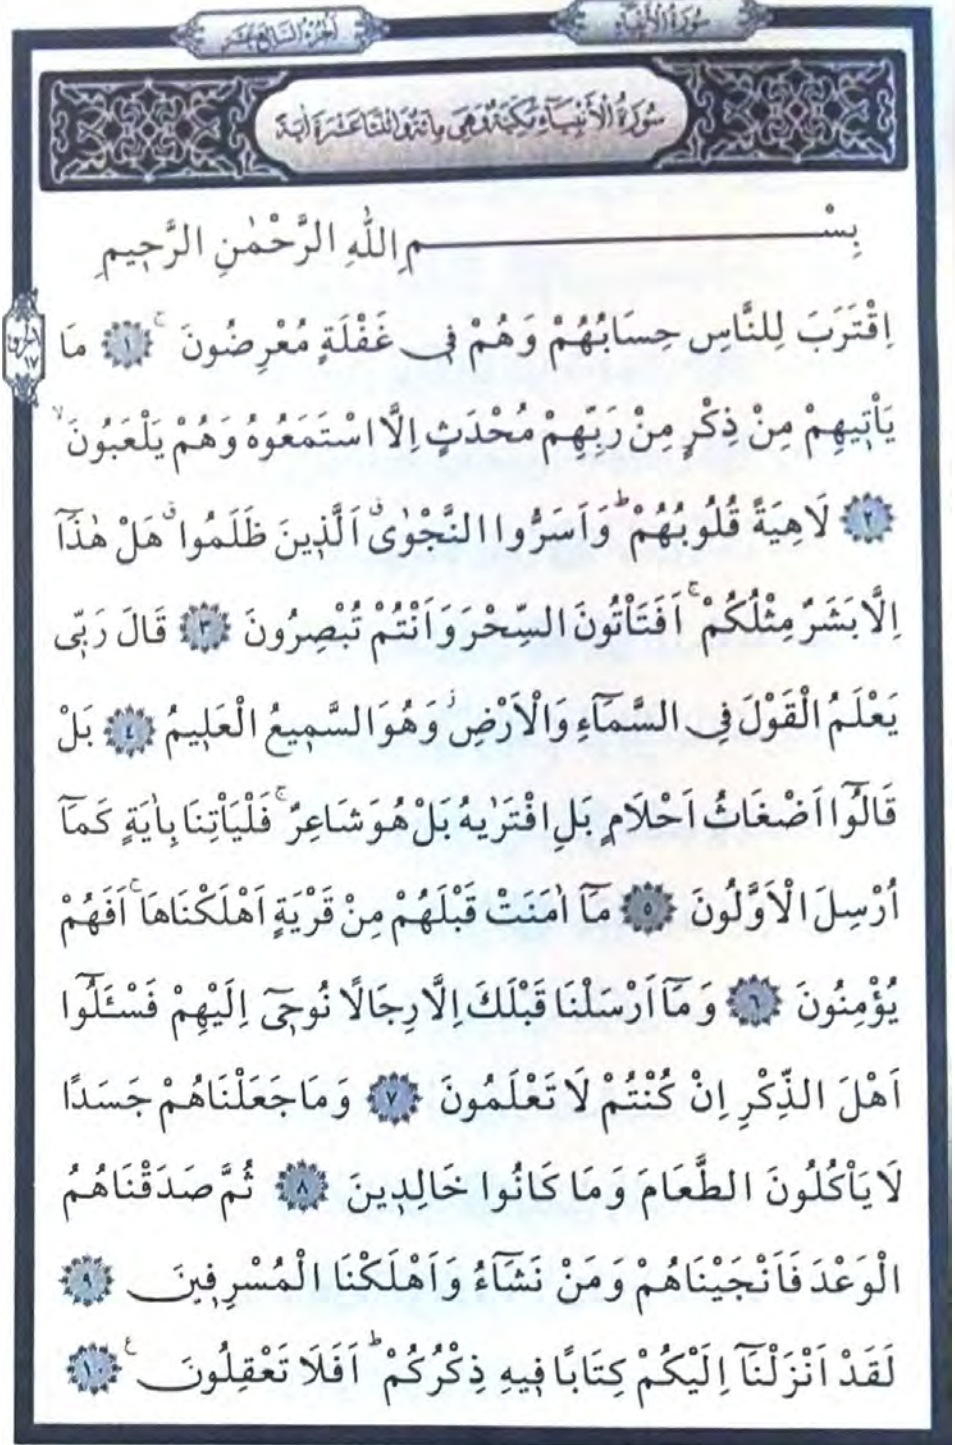 سُورَةُ الْأَنْبِيَاءِ
اَلْجُزْءُ السَّابِعُ عَشَرَ
سُورَةُ الْأَنْبِيَاءِ مَكِّيَّةٌ وَهِيَ مِائَةٌ وَاثْنَتَا عَشْرَةَ اٰيَةً
بِسْمِ اللّٰهِ الرَّحْمٰنِ الرَّحٖيمِ
اِقْتَرَبَ لِلنَّاسِ حِسَابُهُمْ وَهُمْ فٖي غَفْلَةٍ مُعْرِضُونَۚ ﴿١﴾ مَا
اَلْحِزْبُ ١٧
يَأْتٖيهِمْ مِنْ ذِكْرٍ مِنْ رَبِّهِمْ مُحْدَثٍ اِلَّا اسْتَمَعُوهُ وَهُمْ يَلْعَبُونَۙ
﴿٢﴾ لَاهِيَةً قُلُوبُهُمْؕ وَاَسَرُّوا النَّجْوٰىۗ اَلَّذٖينَ ظَلَمُواۗ هَلْ هٰذَٓا
اِلَّا بَشَرٌ مِثْلُكُمْۚ اَفَتَأْتُونَ السِّحْرَ وَاَنْتُمْ تُبْصِرُونَ ﴿٣﴾ قَالَ رَبّٖي
يَعْلَمُ الْقَوْلَ فِي السَّمَٓاءِ وَالْاَرْضِؗ وَهُوَ السَّمٖيعُ الْعَلٖيمُ ﴿٤﴾ بَلْ
قَالُٓوا اَضْغَاثُ اَحْلَامٍ بَلِ افْتَرٰيهُ بَلْ هُوَ شَاعِرٌۚ فَلْيَأْتِنَا بِاٰيَةٍ كَمَٓا
اُرْسِلَ الْاَوَّلُونَ ﴿٥﴾ مَٓا اٰمَنَتْ قَبْلَهُمْ مِنْ قَرْيَةٍ اَهْلَكْنَاهَاۚ اَفَهُمْ
يُؤْمِنُونَ ﴿٦﴾ وَمَٓا اَرْسَلْنَا قَبْلَكَ اِلَّا رِجَالًا نُوحٖٓي اِلَيْهِمْ فَسْـَٔلُٓوا
اَهْلَ الذِّكْرِ اِنْ كُنْتُمْ لَا تَعْلَمُونَ ﴿٧﴾ وَمَا جَعَلْنَاهُمْ جَسَدًا
لَا يَأْكُلُونَ الطَّعَامَ وَمَا كَانُوا خَالِدٖينَ ﴿٨﴾ ثُمَّ صَدَقْنَاهُمُ
الْوَعْدَ فَاَنْجَيْنَاهُمْ وَمَنْ نَشَٓاءُ وَاَهْلَكْنَا الْمُسْرِفٖينَ ﴿٩﴾
لَقَدْ اَنْزَلْنَٓا اِلَيْكُمْ كِتَابًا فٖيهِ ذِكْرُكُمْؕ اَفَلَا تَعْقِلُونَࣖ ﴿١٠﴾